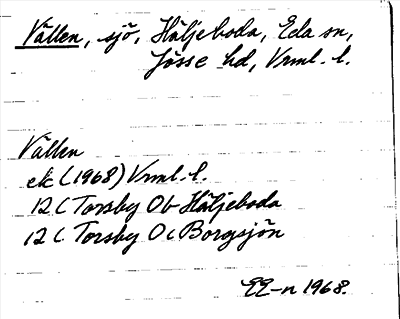 Vällen, sjö, Häljeboda, Eda sn,
Jösse hd, Vrml. l.
Vällen
ek (1968) Vrml. l.
12 C Torsby 0 b Häljeboda
12 C Torsby 0 c Borgsjön
EE-n 1968.